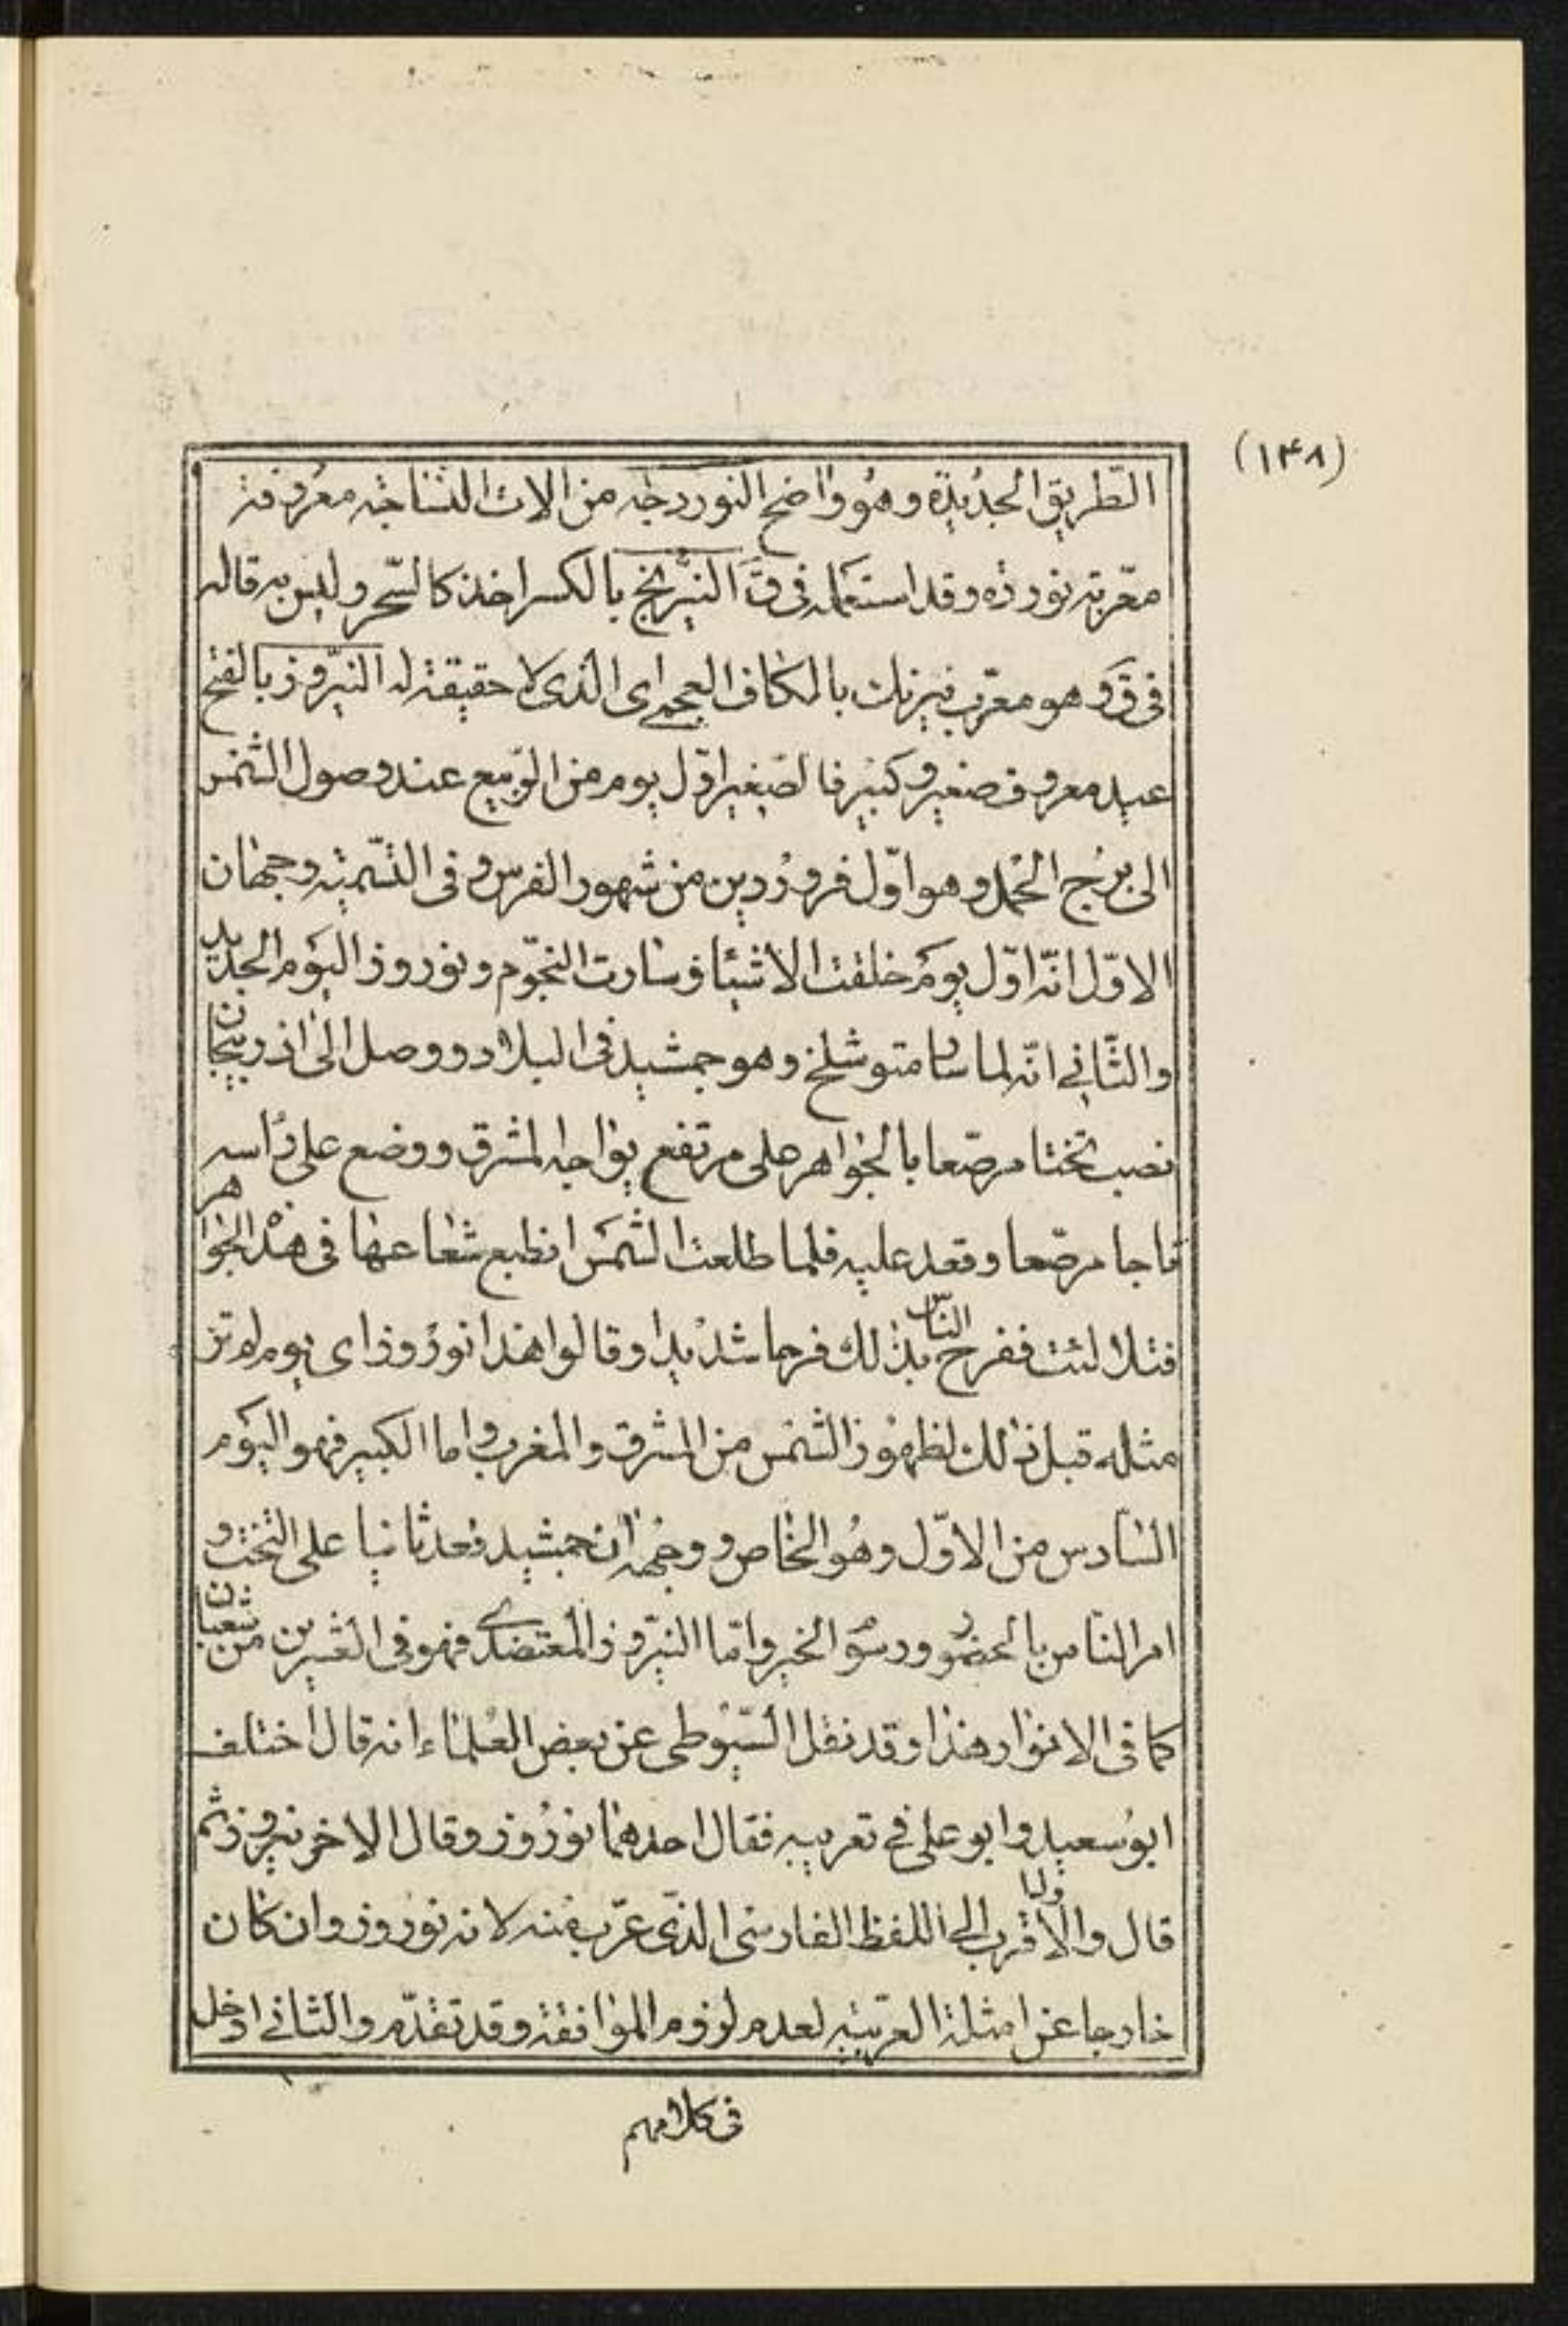 (١۴٨)
الطريق الجديدة وهو واضح النوردجه من الات النساجة معروفة
معربة نورده وقد استعمله فى ق النيرنج بالكسر اخذ كالسحر وليس به قاله
فى ق وهو معرب نيرنك بالكاف العجمى اى الذى لا حقيقة له النيروز بالفتح
عيد معروف صغير وكبير فالصغير اول يوم من الربيع عند وصول الشمس
الى برج الحمل وهو اول فروردين من شهور الفرس وفى التسمية وجهان
الاول انه اول يوم خلقت الاشيا وسارت النجوم ونوروز اليوم الجديد
والثانى انه لما سار متوشلخ وهو جمشيد فى البلاد ووصل الى اذربيجان
نصب تختا مرصعا بالجواهر على مرتفع يواجه المشرق ووضع على راسه
تاجا مرصعا وقعد عليه فلما طلعت الشمس انطبع شعاعها فى هذه الجواهر
فتلالئت ففرح الناس بذلك فرحا شديدا وقالوا هذا نوروز اى يوم لم نر
مثله قبل ذلك لظهور الشمس من المشرق والمغرب واما الكبير فهو اليوم
السادس من الاول وهو الخاص ووجهه ان جمشيد قعد ثانيا على التخت و
امر الناس بالحضور ورسوم الخير واما النيروز المعتضدى فهو فى العشرين من شعبان
كما فى الانوار هذا وقد نقل السيوطى عن بعض العلماء انه قال اختلف
ابو سعيد وابو على فى تعريبه فقال احدهما نوروز وقال الاخر نيروز ثم
قال والاول اقرب الى اللفظ الفارسى الذى عرب منه لانه نوروز وان كان
خارجا عن امثلة العربية لعدم لزوم الموافقة وقد تقدم والثانى ادخل
فى كلامهم